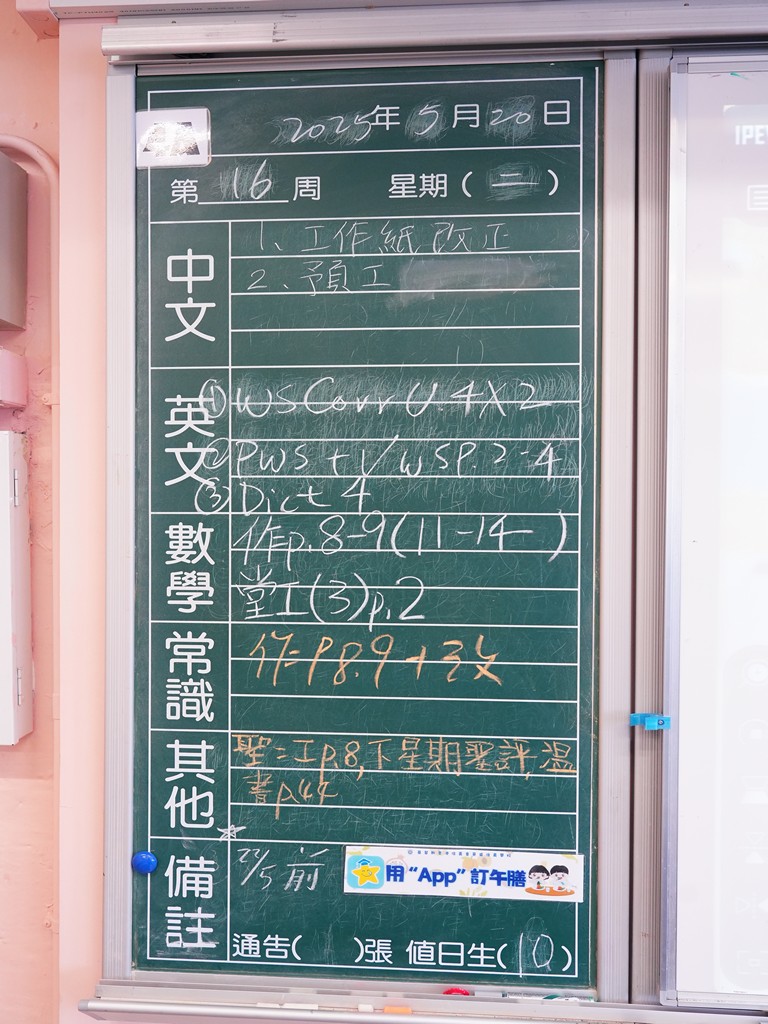 2025年5月20日
第16周 星期(二)
中文
1、工作紙改正
2、預工
英文
① WS Corr U.4X2
② PWS + V WS P.2-4
③ Dict 4
數學
作p.8-9(11-14)
堂工(3)p.2
常識
作:P8.9+改
其他
聖:工p.8,下星期聖評,溫
書p.44
備註
22/5前
用“App”訂午膳
通告( )張 值日生(10)
IPEV